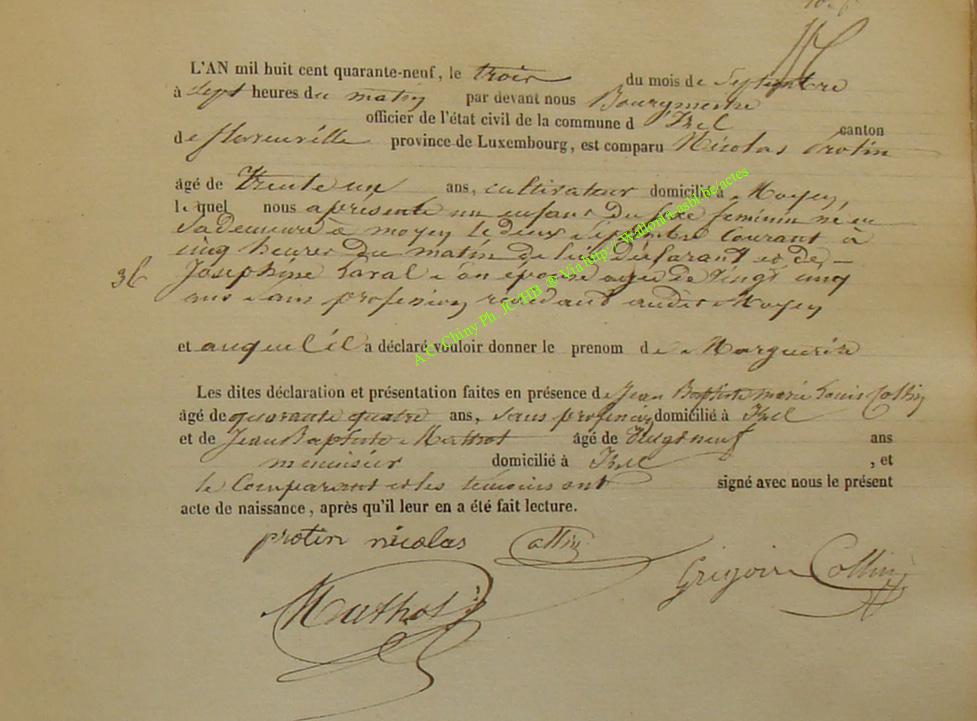 L'AN mil huit cent quarante-neuf, le trois du mois de Septembre
à Sept heures du matin par devant nous Bourgmestre
officier de l'état civil de la commune d'Izel canton
de florenville province de Luxembourg, est comparu Nicolas Protin
âgé de trente un ans, cultivateur domicilié à Moyen,
lequel nous a présenté un enfant du sexe feminin né en
sa demeure à moyen le deux Septembre Courant à
cinq heures du matin de lui Déclarant et de
36
Joséphine Laval son épouse agée de vingt cinq
ans sans profession résidant audit Moyen
et auquel il a déclaré vouloir donner le prenom de Marguerite
Les dites déclaration et présentation faites en présence de Jean Baptiste marie Louis Collin
âgé de quarante quatre ans, sans profession domicilié à Izel
et de Jean Baptiste Mathot âgé de vingt neuf ans
menuisier domicilié à Izel , et
le Comparant et les témoins ont signé avec nous le présent
acte de naissance, après qu'il leur en a été fait lecture.
protin nicolas Collin
Grégoire Collin
Mathot
A.C. Chiny Ph. JC HB @ Via http://Wallonia.asbl.be/actes